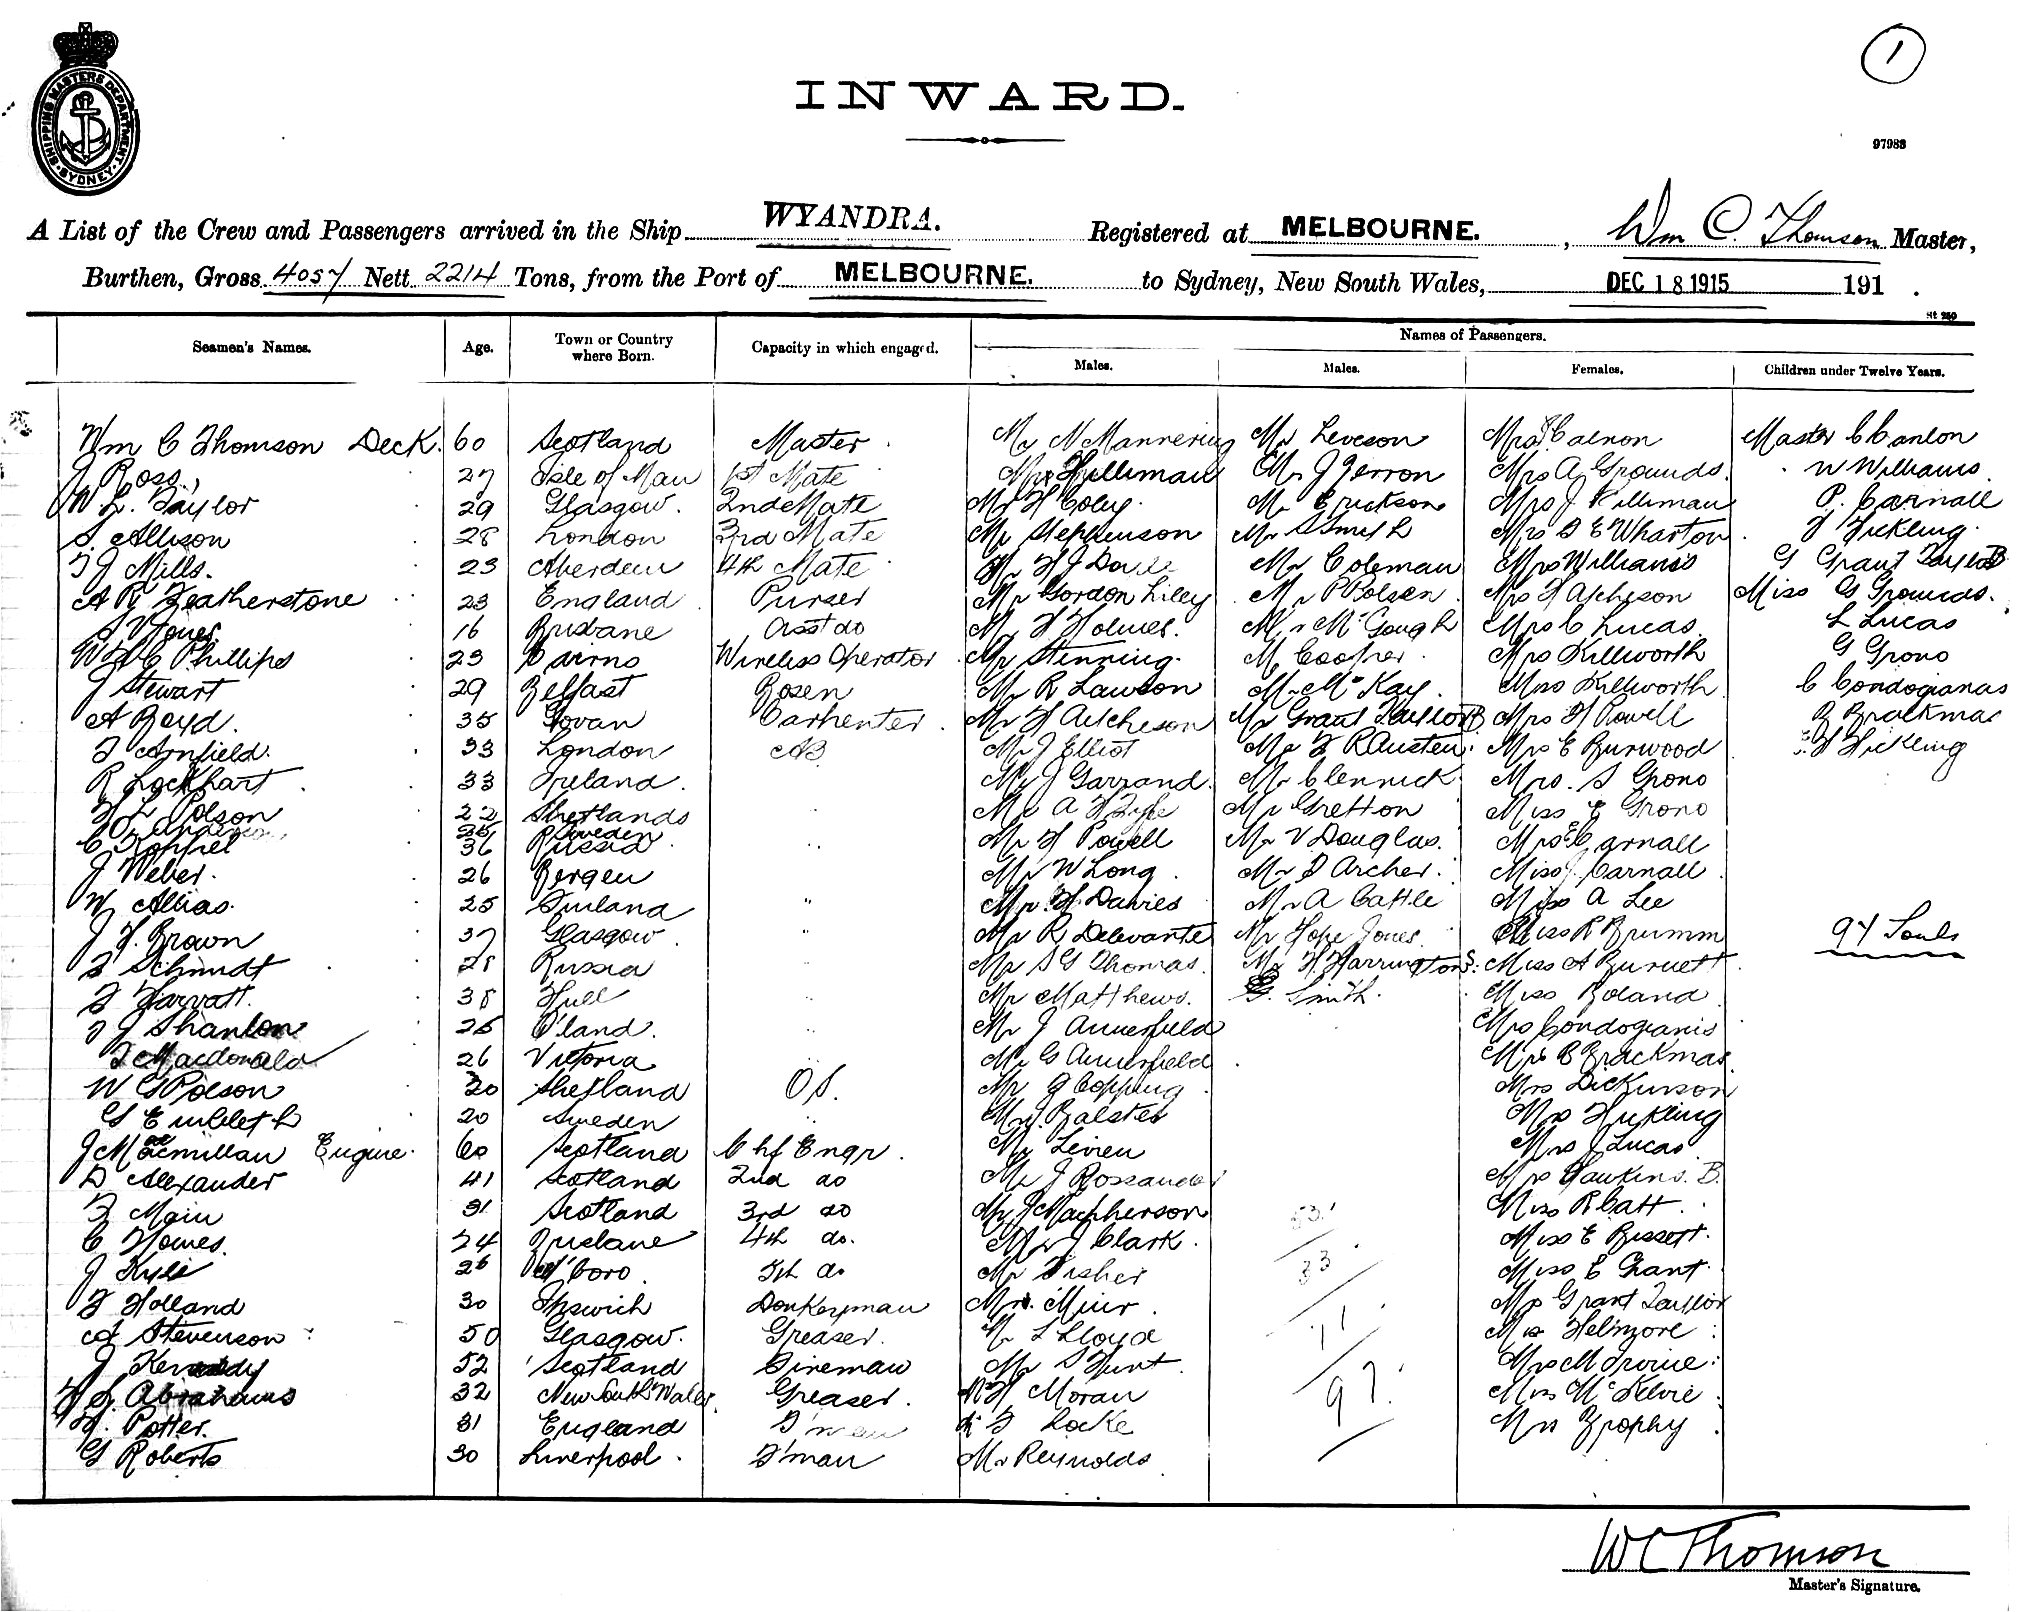 1
SHIPPING MASTERS DEPARTMENT
SYDNEY
INWARD.
97983
A List of the Crew and Passengers arrived in the Ship WYANDRA. Registered at MELBOURNE. , Wm C. Thomson Master,
Burthen, Gross 4057 Nett 2214 Tons, from the Port of MELBOURNE. to Sydney, New South Wales, DEC 18 1915 191 .
St 250
Names of Passengers.
Seamen's Names. Age. Town or Country where Born. Capacity in which engaged. Males. Males. Females. Children under Twelve Years.
Wm C Thomson Deck. 60 Scotland Master Mr N Mannering Mr Leveson Mrs Master C Canlon
J Ross 27 Isle of Man 1st Mate Mr Mr J Gerron Mrs A Grounds W Williams
W L. Taylor 29 Glasgow. 2nd Mate Mr H Coley Mr Erickson Mrs J Killiman P. Carnall
S. Allison 28 London 3rd Mate Mr Stephenson Mr S Smith Mrs D E Wharton Fickling.
T J Mills. 23 Aberdeen 4th Mate Mr H J Mr Coleman Mrs Williams G Grant Taylor
A R Featherstone 23 England Purser Mr Gordon Lilley Mr P Polsen Mrs H Atcheson Miss G Grounds.
S V Jones 16 Brisbane Asst do Mr H Holmes. Mr McGough Mrs C Lucas L Lucas
W C Phillips 23 Cairns Wireless Operator Mr Stenning Mr Cooper Mrs Killworth G Grono
J Stewart 29 Belfast Bosen Mr R Lawson Mr McKay. Miss Killworth C Condogianas
A Boyd. 35 Govan Carpenter. Mr H Aitcheson Mr Grant Taylor Mrs H Powell B Brackmas
F Arnfield. 33 London AB Mr J Elliot Mr F R Austen. Mrs E Burwood H Fickling
R Lockhart 33 Ireland. Mr J Garrand Mr Clennick Mrs. S Grono
H L Polson 22 Shetlands Mr A H Fyfe Mr Gretton Miss E Grono
Sweden
C Koppel 36 Russia Mr H Powell Mr V Douglas. Mrs Carnall
J Weber. 26 Bergen Mr W Long Mr D Archer. Miss J Carnall
W Allias. 25 Finland " Mr H Davies Mr A Cattle Miss A Lee
J H. Brown 37 Glasgow " Mr R Delevante Mr Hope Jones Miss R Brumm 97 Souls
F Schmidt 28 Russia Mr S G Thomas Mr H Harrington Miss A Burnett
F Harvatt. 38 Hull Mr Matthews. G. Smith. Miss Boland
T J Shanlon 26 O'land. Mr J Annerfield Mrs Condogianis
J Macdonald 26 Victoria Mr G Annerfield Mrs B Brackmas
W G Polson 20 Shetland OS. Mr G Copping Mrs Dickinson
G Embleth 20 Sweden Mr Balster Mrs Fickling
J Macmillan Engine. 60 Scotland Chf Engr. Mr Levien Mrs J Lucas
D Alexander 41 Scotland 2nd do Mr J Mrs Hawkins. B.
F Main 31 Scotland 3rd do Mr J Macpherson 53 Miss R Catt
C Homes. 24 Brisbane 4th do. Mr J Clark. Miss E Bissett.
J Kyle 26 5th do Mr Fisher 33 Miss E Grant
F Holland 30 Ipswich Donkeyman Mr Muir. Mrs Grant Taylor
A Stevenson 50 Glasgow. Greaser. Mr L Lloyd 11 Mrs Helmore
J Kennedy 52 Scotland Fireman Mr S Hunt Mrs M Irvine
H J. Abrahams 32 New South Wales Greaser. Mr H Moran 97. Mrs McKelvie
H. Potter. 31 England F'man Mr F Locke Mrs Brophy
G Roberts 30 Liverpool F'man Mr Reynolds
W C Thomson
Master's Signature.